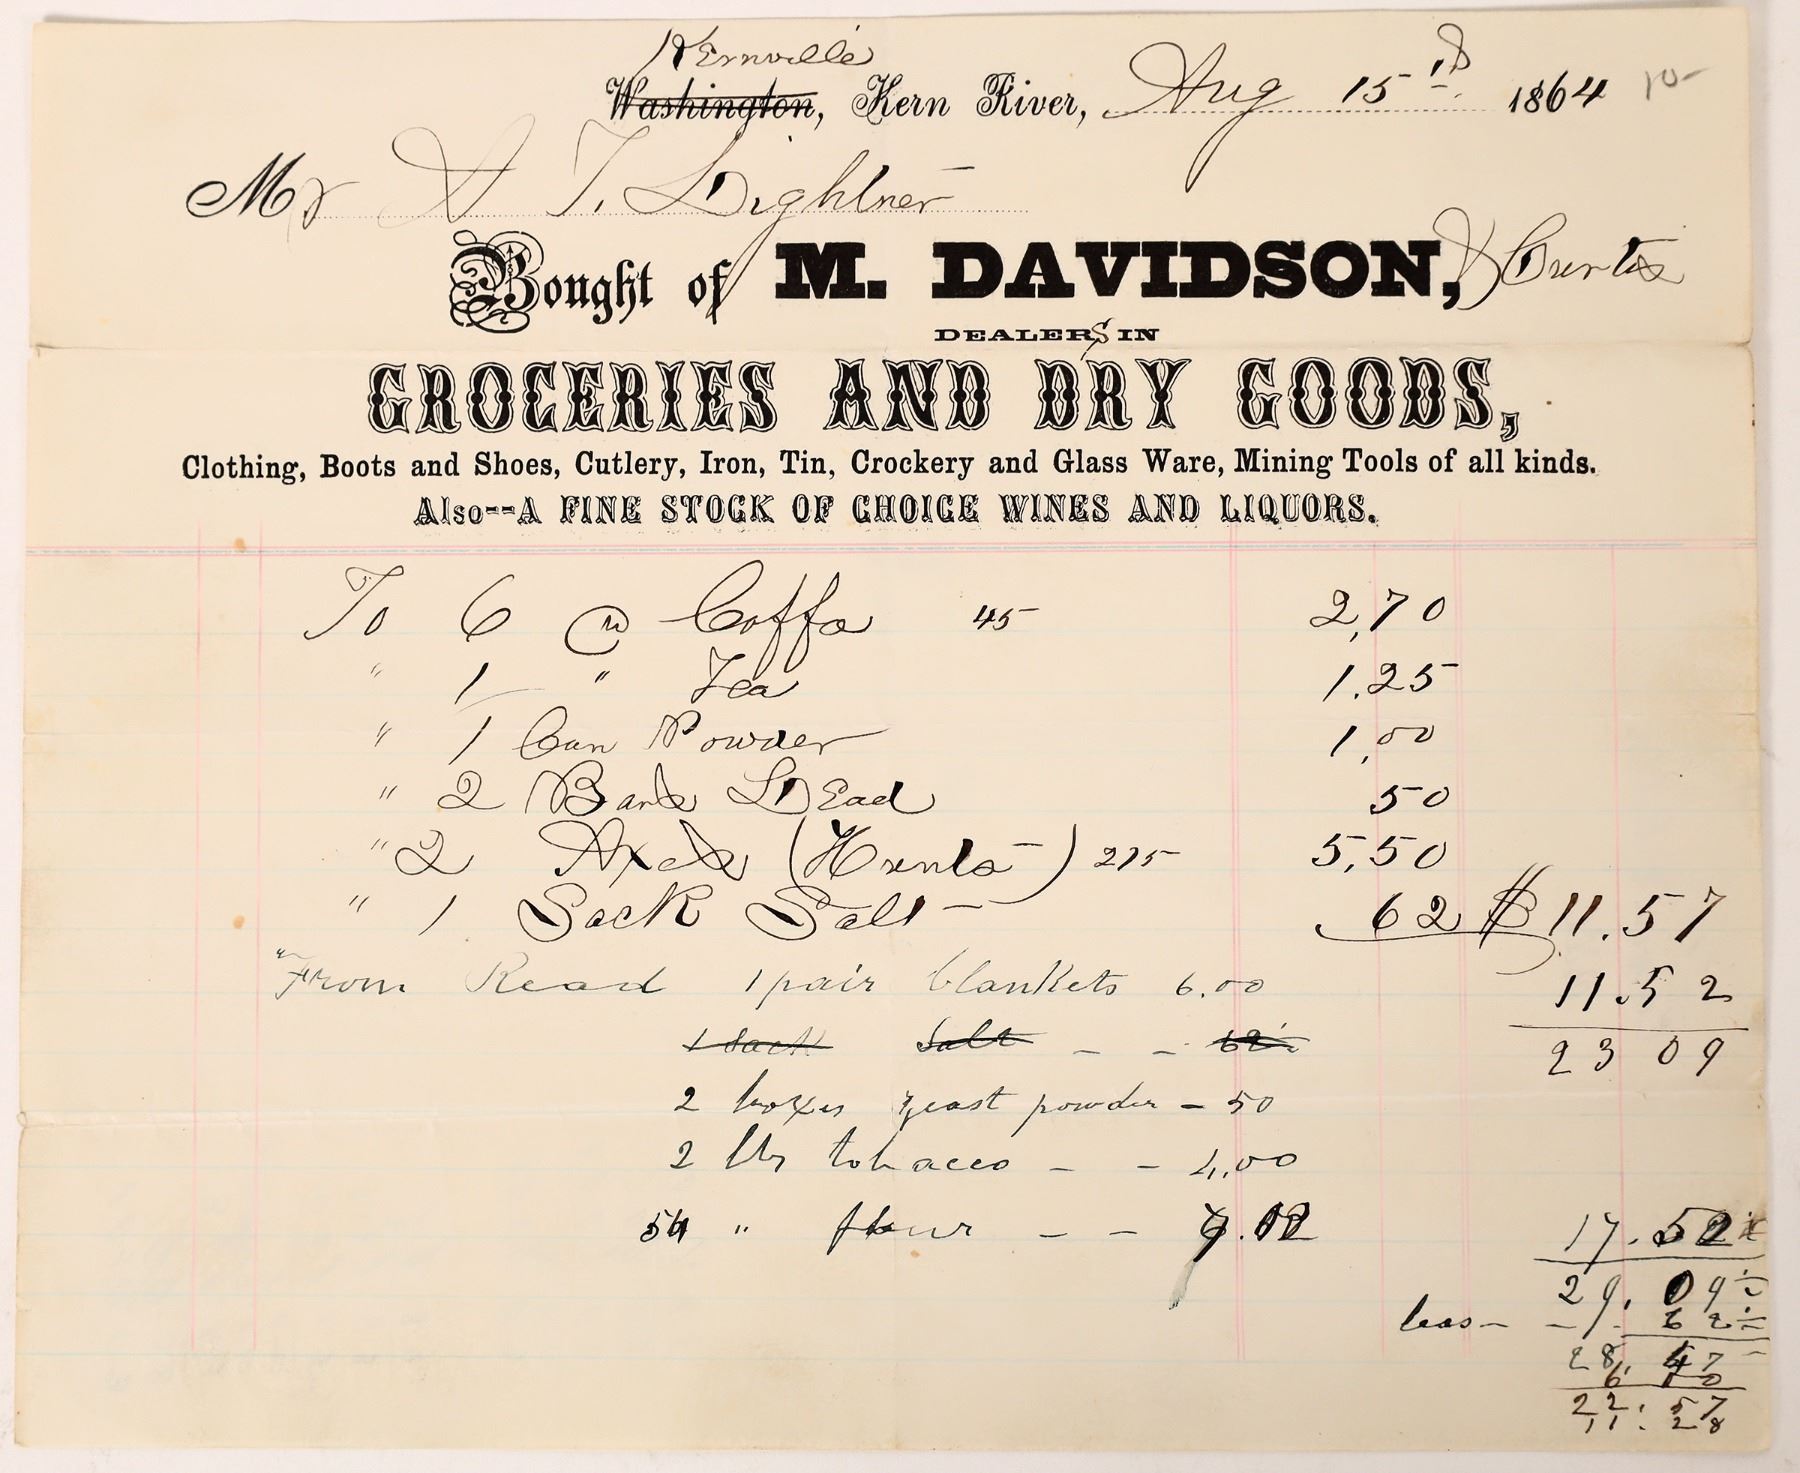 Kernville
Washington, Kern River, Aug 15th 1864 10-
Mr A T. Lightner
Bought of M. DAVIDSON, & Curtis
DEALERS IN
GROCERIES AND DRY GOODS,
Clothing, Boots and Shoes, Cutlery, Iron, Tin, Crockery and Glass Ware, Mining Tools of all kinds.
Also--A FINE STOCK OF CHOICE WINES AND LIQUORS.
To 6 Coffa 45 2,70
" 1 " Tea 1.25
" 1 Can Powder 1,00
" 2 Bars Lead 50
" 2 Axes (Hunts) 275 5,50
" 1 Sack Salt 62 $11.57
From Read 1 pair blankets 6.00 11.52
1 sack salt - - 62
23 09
2 boxes yeast powder - 50
2 lbs tobacco - - 4,00
" flour - -
17. 52
29. 09
less - 62
28. 47
6
22. 57
11. 28